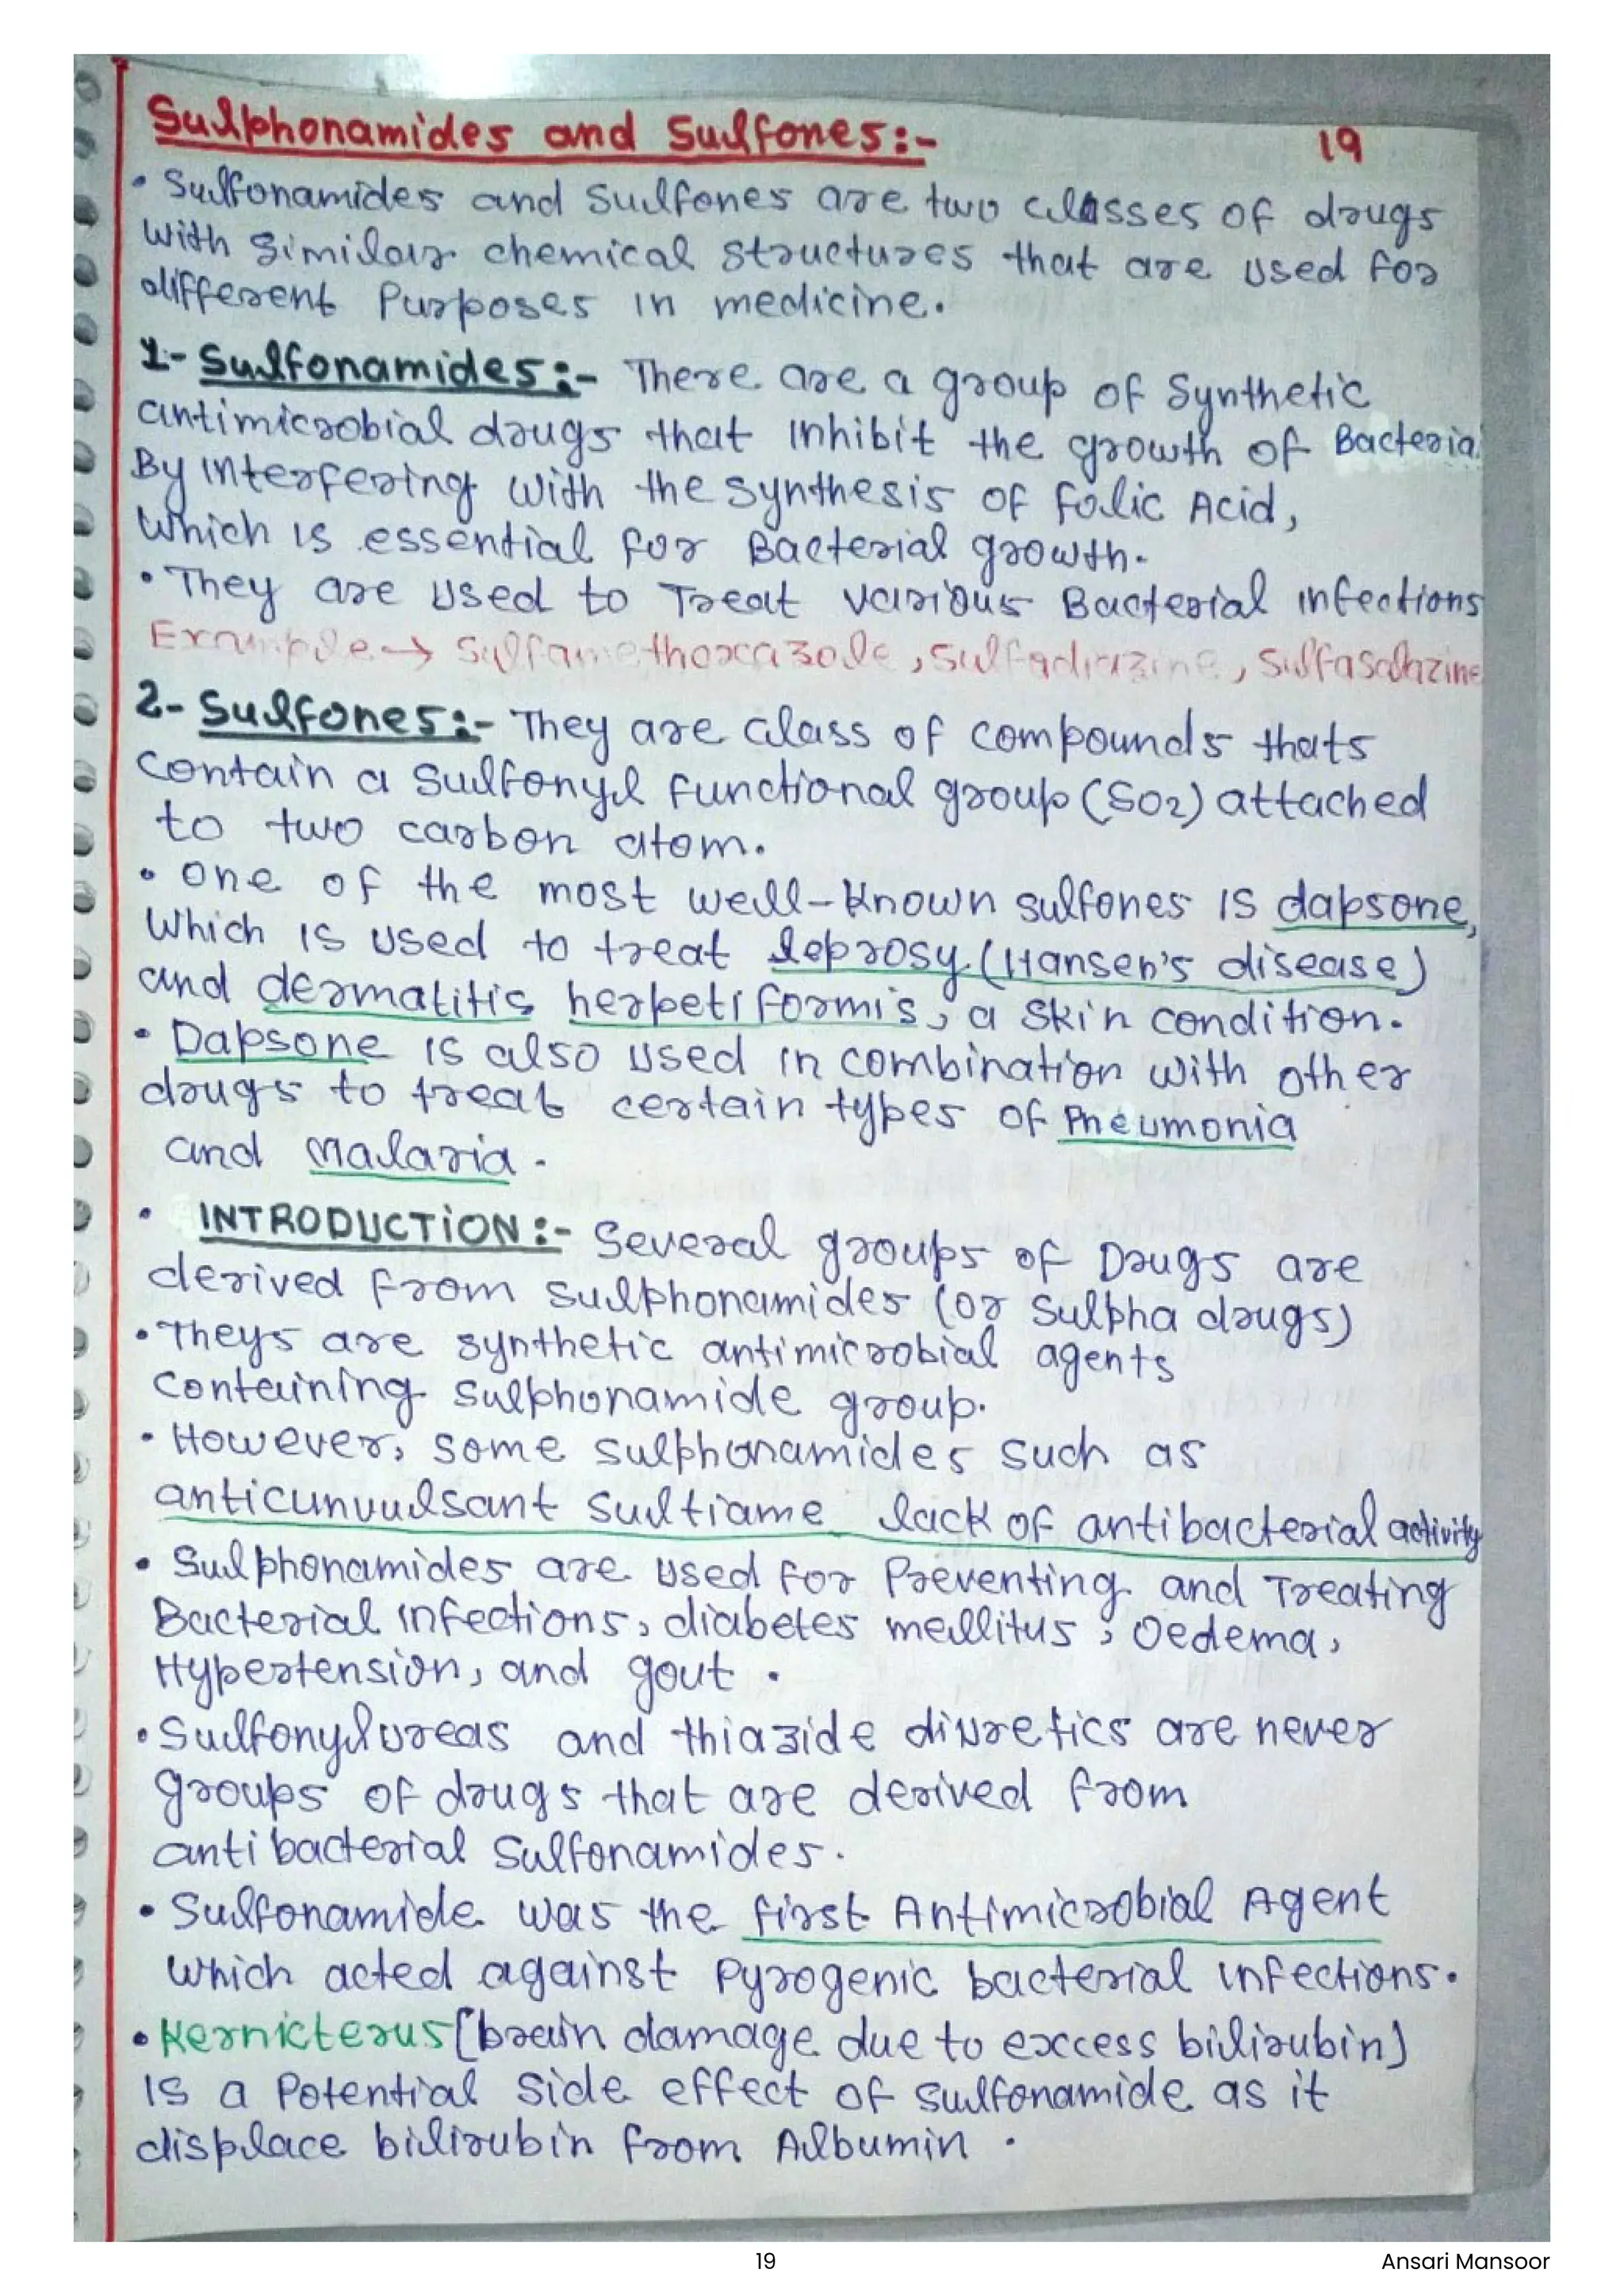 Sulphonamides and Sulfones:-
19
• Sulfonamides and Sulfones are two classes of drugs
with Similar chemical structures that are used for
different Purposes in medicine.
1- Sulfonamides:- There are a group of Synthetic
antimicrobial drugs that inhibit the growth of Bacteria
By interfering with the synthesis of folic Acid,
Which is essential for Bacterial growth.
• They are used to Treat various Bacterial infections
Example → Sulfamethoxazole, sulfadiazine, Sulfasalazine
2- Sulfones:- They are class of compounds thats
Contain a Sulfonyl functional group (SO2) attached
to two carbon atom.
• One of the most well-known sulfones is dapsone,
Which is used to treat leprosy (Hansen's disease)
and dermatitis herpetiformis, a skin condition.
• Dapsone is also used in combination with other
drugs to treat certain types of Pneumonia
and Malaria.
• INTRODUCTION:- Several groups of Drugs are
derived from Sulphonamides (or Sulpha drugs)
• Theys are synthetic antimicrobial agents
Containing sulphonamide group.
• However, some sulphonamides such as
anticunvulsant sultiame lack of antibacterial activity
• Sulphonamides are used for Preventing and Treating
Bacterial infections, diabetes mellitus, Oedema,
Hypertension, and gout.
• Sulfonylureas and thiazide diuretics are never
groups of drugs that are derived from
antibacterial Sulfonamides.
• Sulfonamide was the first Antimicrobial Agent
which acted against Pyrogenic bacterial infections.
• Kernicterus [brain damage due to excess bilirubin]
is a Potential side effect of sulfonamide as it
displace bilirubin from Albumin.
19
Ansari Mansoor